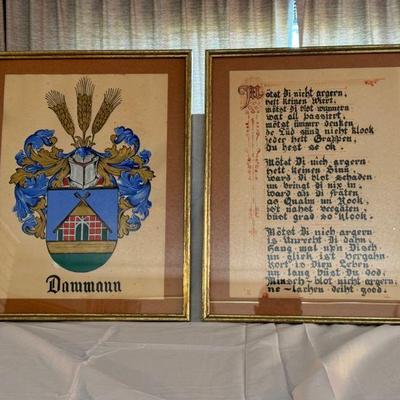 Dammann
Mötst Di nicht argern,
hett keinen Wert,
mötst Di blot wunnern
wat all passiert,
mötst ümmer denken
de Lüd sünd nicht klook
jeder hett Grappen,
Du hest se ok.
Mötst Di nich argern
hett keinen Sinn,
ward Di blot schaden
un bringt Di nix in,
ward an Di fräten,
as Qualm un Rook,
ist nahst vergäten,
büst grad so klook.
Mötst Di nich argern
is Unrecht Di dahn,
Gang mal upn Disch
un gliek ist vergahn.
Kort is Dien Leben
un lang büst Du dod,
Minsch - blot nicht argern,
ne - lachen deiht good.